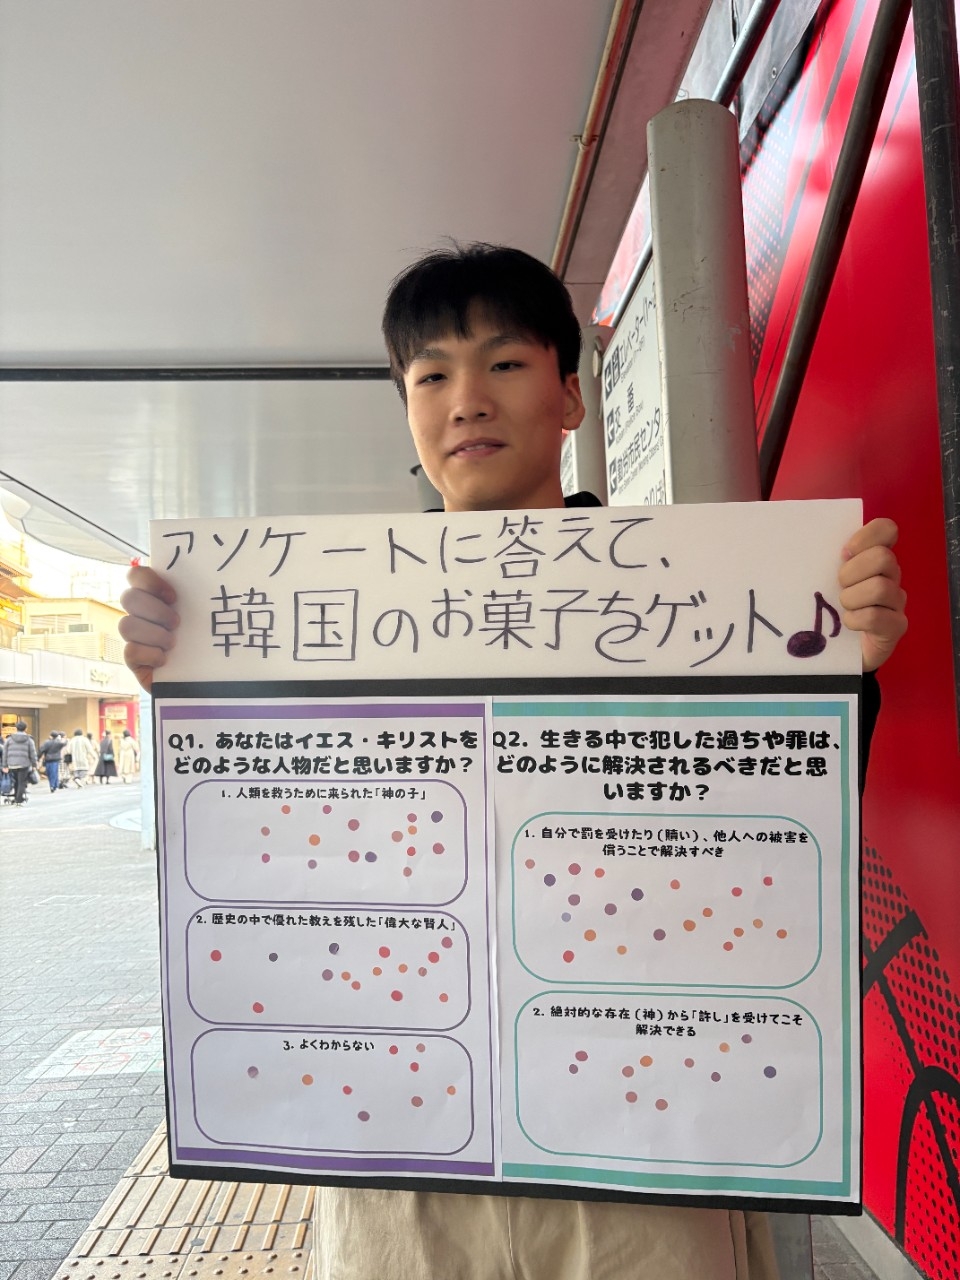 アンケートに答えて、
韓国のお菓子をゲット♪
Q1. あなたはイエス・キリストを
どのような人物だと思いますか？
1. 人類を救うために来られた「神の子」
2. 歴史の中で優れた教えを残した「偉大な賢人」
3. よくわからない
Q2. 生きる中で犯した過ちや罪は、
どのように解決されるべきだと思
いますか？
1. 自分で罰を受けたり（贖い）、他人への被害を
償うことで解決すべき
2. 絶対的な存在（神）から「許し」を受けてこそ
解決できる
エレベーター
交番